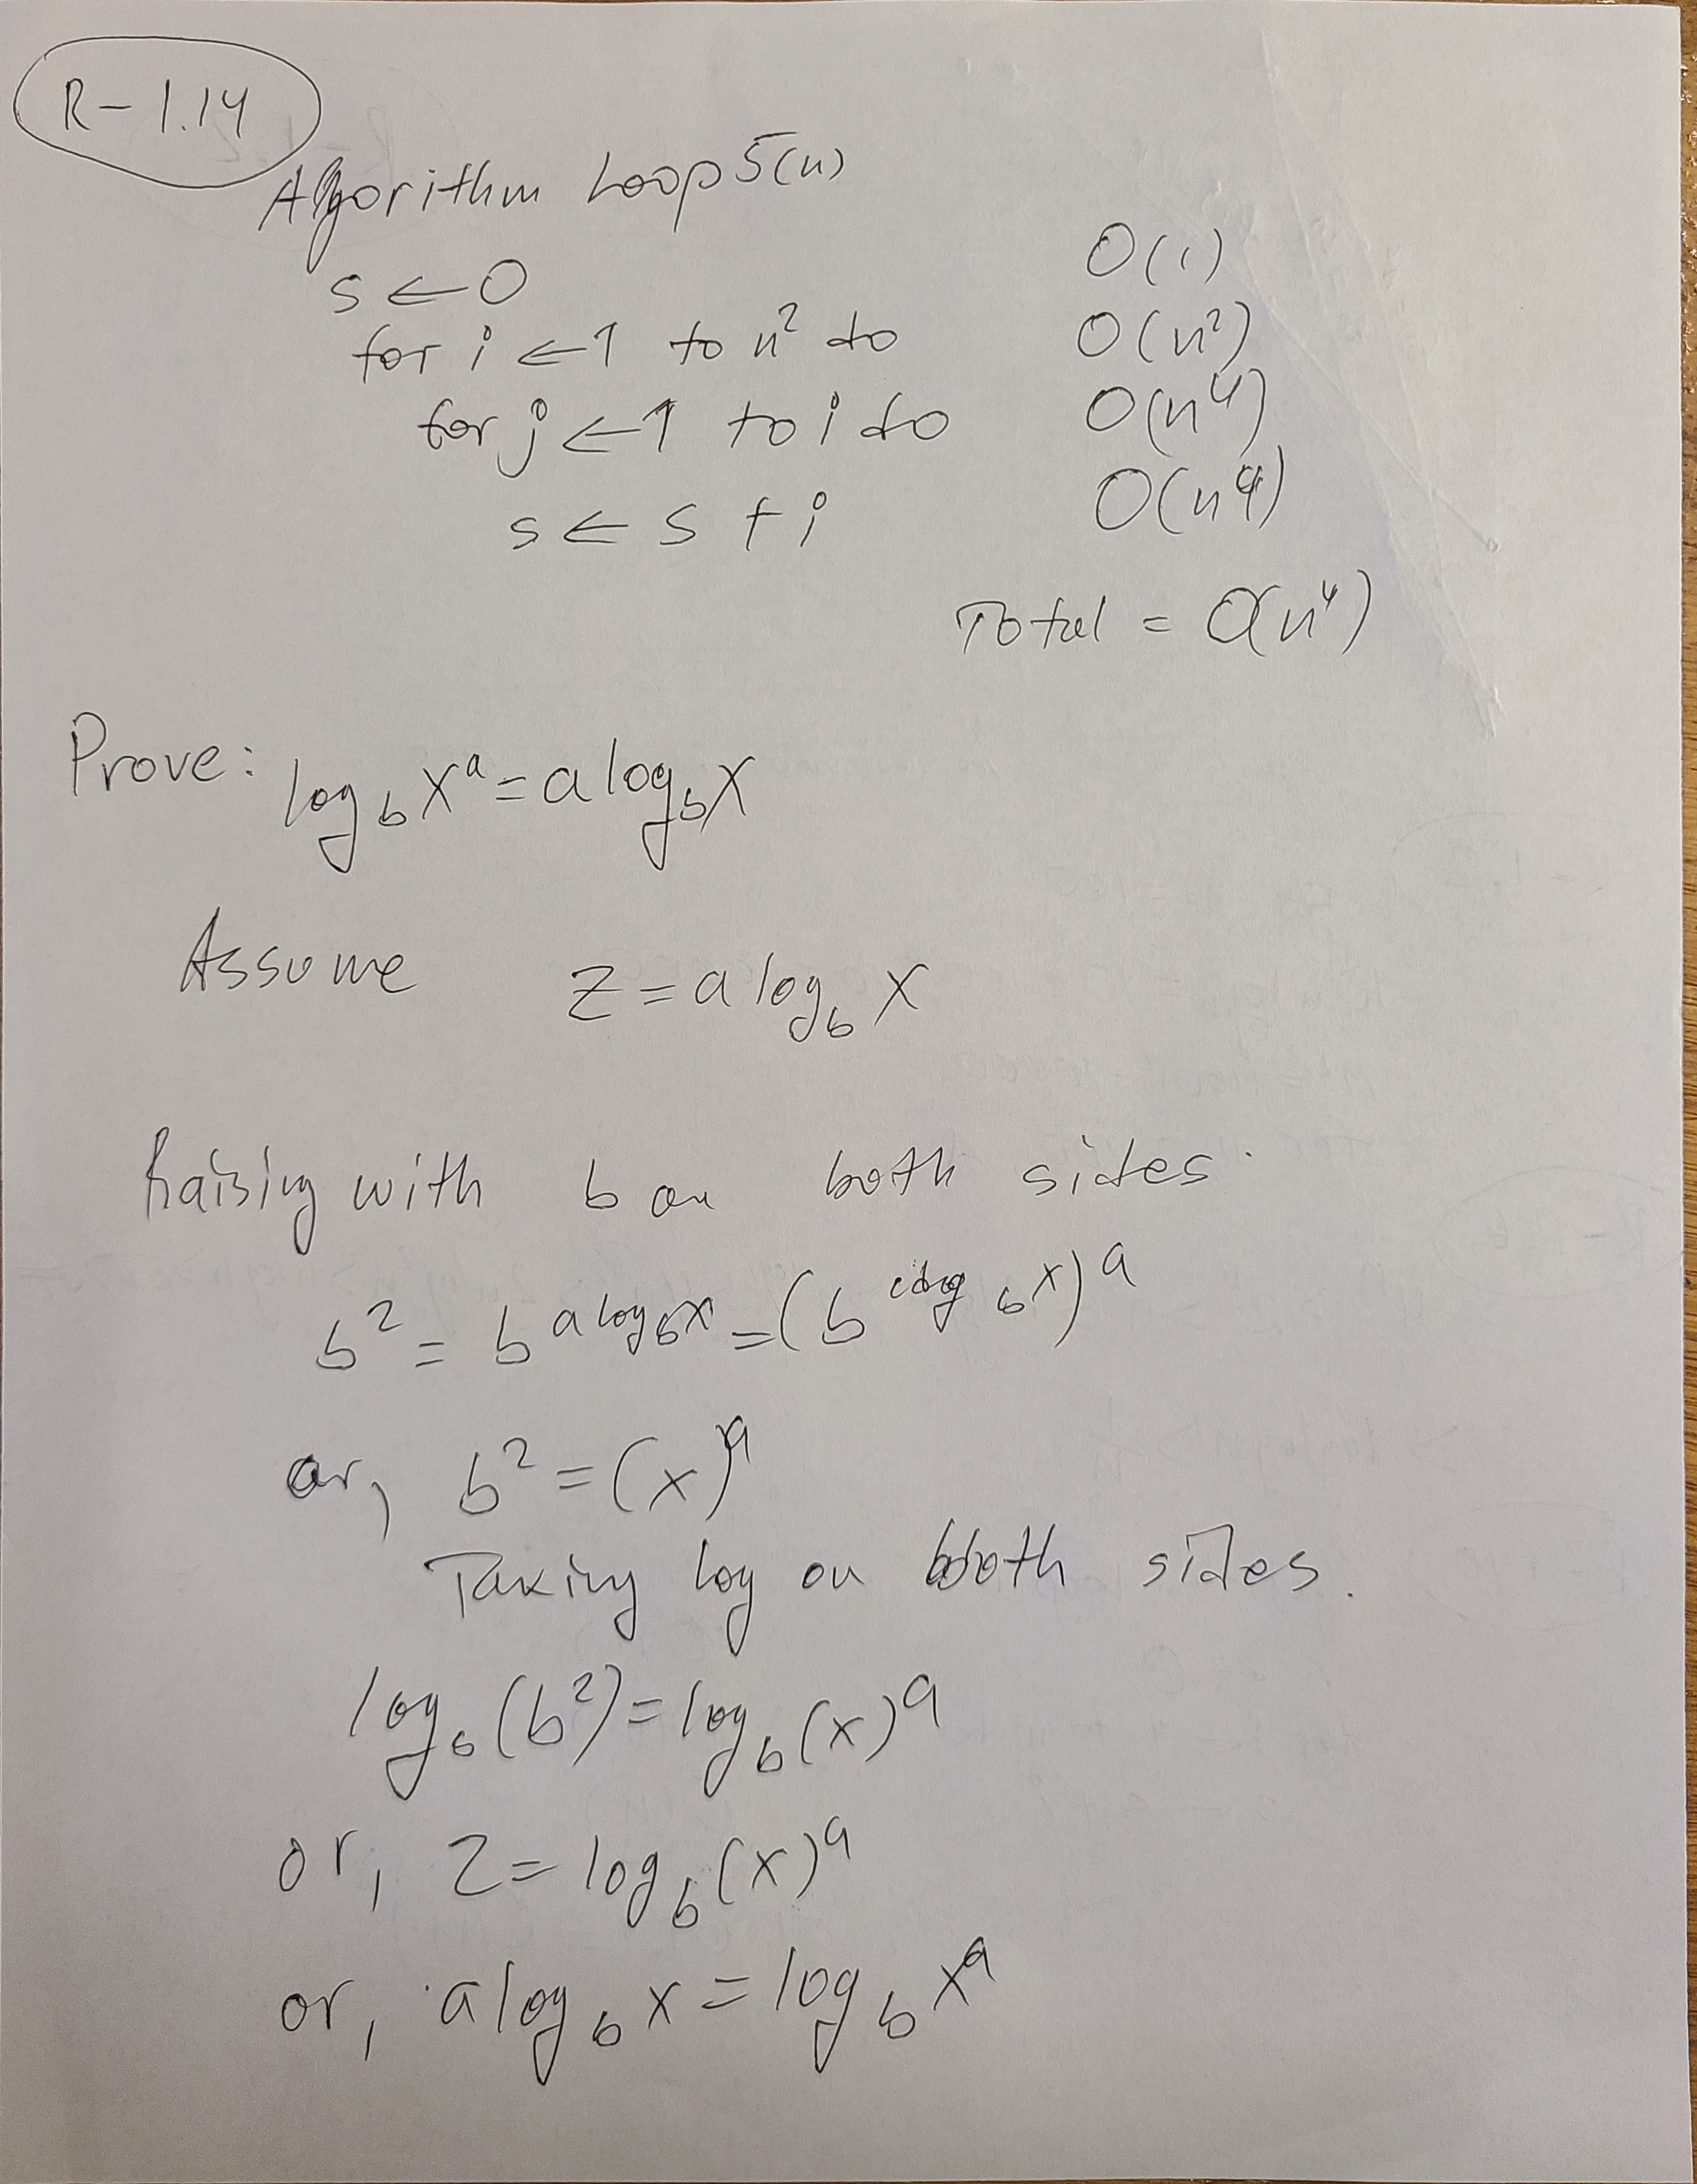 R-1.14
Algorithm Loop5(n)
s ← 0 O(1)
for i ← 1 to n² do O(n²)
for j ← 1 to i do O(n⁴)
s ← s + i O(n⁴)
Total = O(n⁴)
Prove: log_b x^a = a log_b x
Assume z = a log_b x
Raising with b on both sides.
b^z = b^(a log_b x) = (b^(log_b x))^a
or, b^z = (x)^a
Taking log on both sides.
log_b (b^z) = log_b (x)^a
or, z = log_b (x)^a
or, a log_b x = log_b x^a